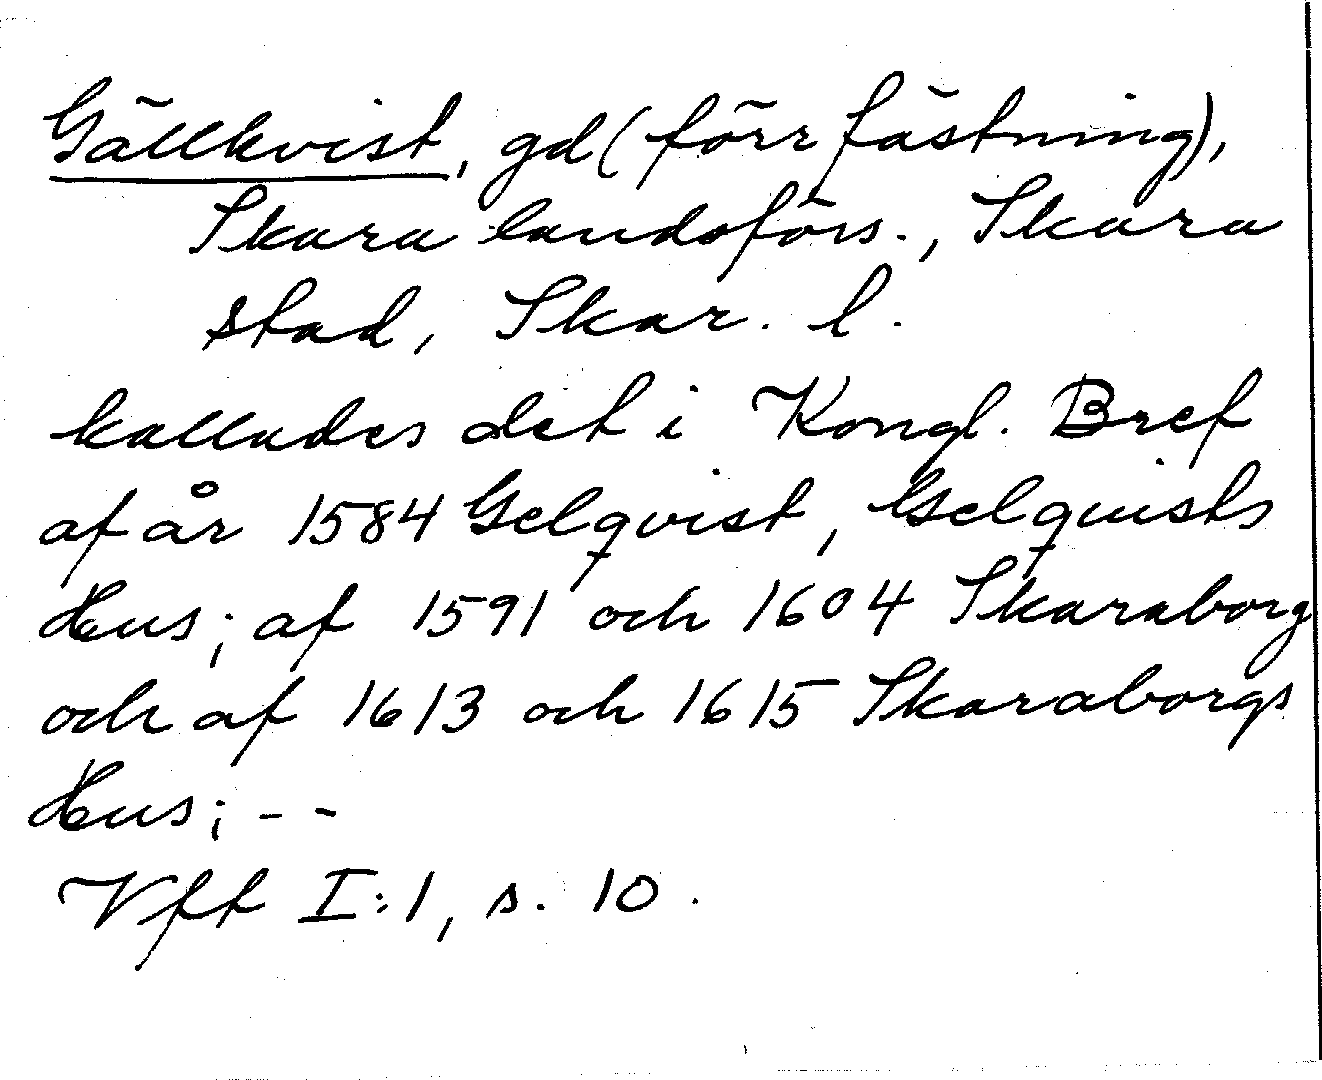 Gällkvist, gd (förr fästning),
Skara landsförs., Skara
stad, Skar. l.
kallades det i Kongl. Bref
af år 1584 Gelqvist, Gelquists
Hus; af 1591 och 1604 Skaraborg
och af 1613 och 1615 Skaraborgs
Hus; - -
Vfft I:1, s. 10.